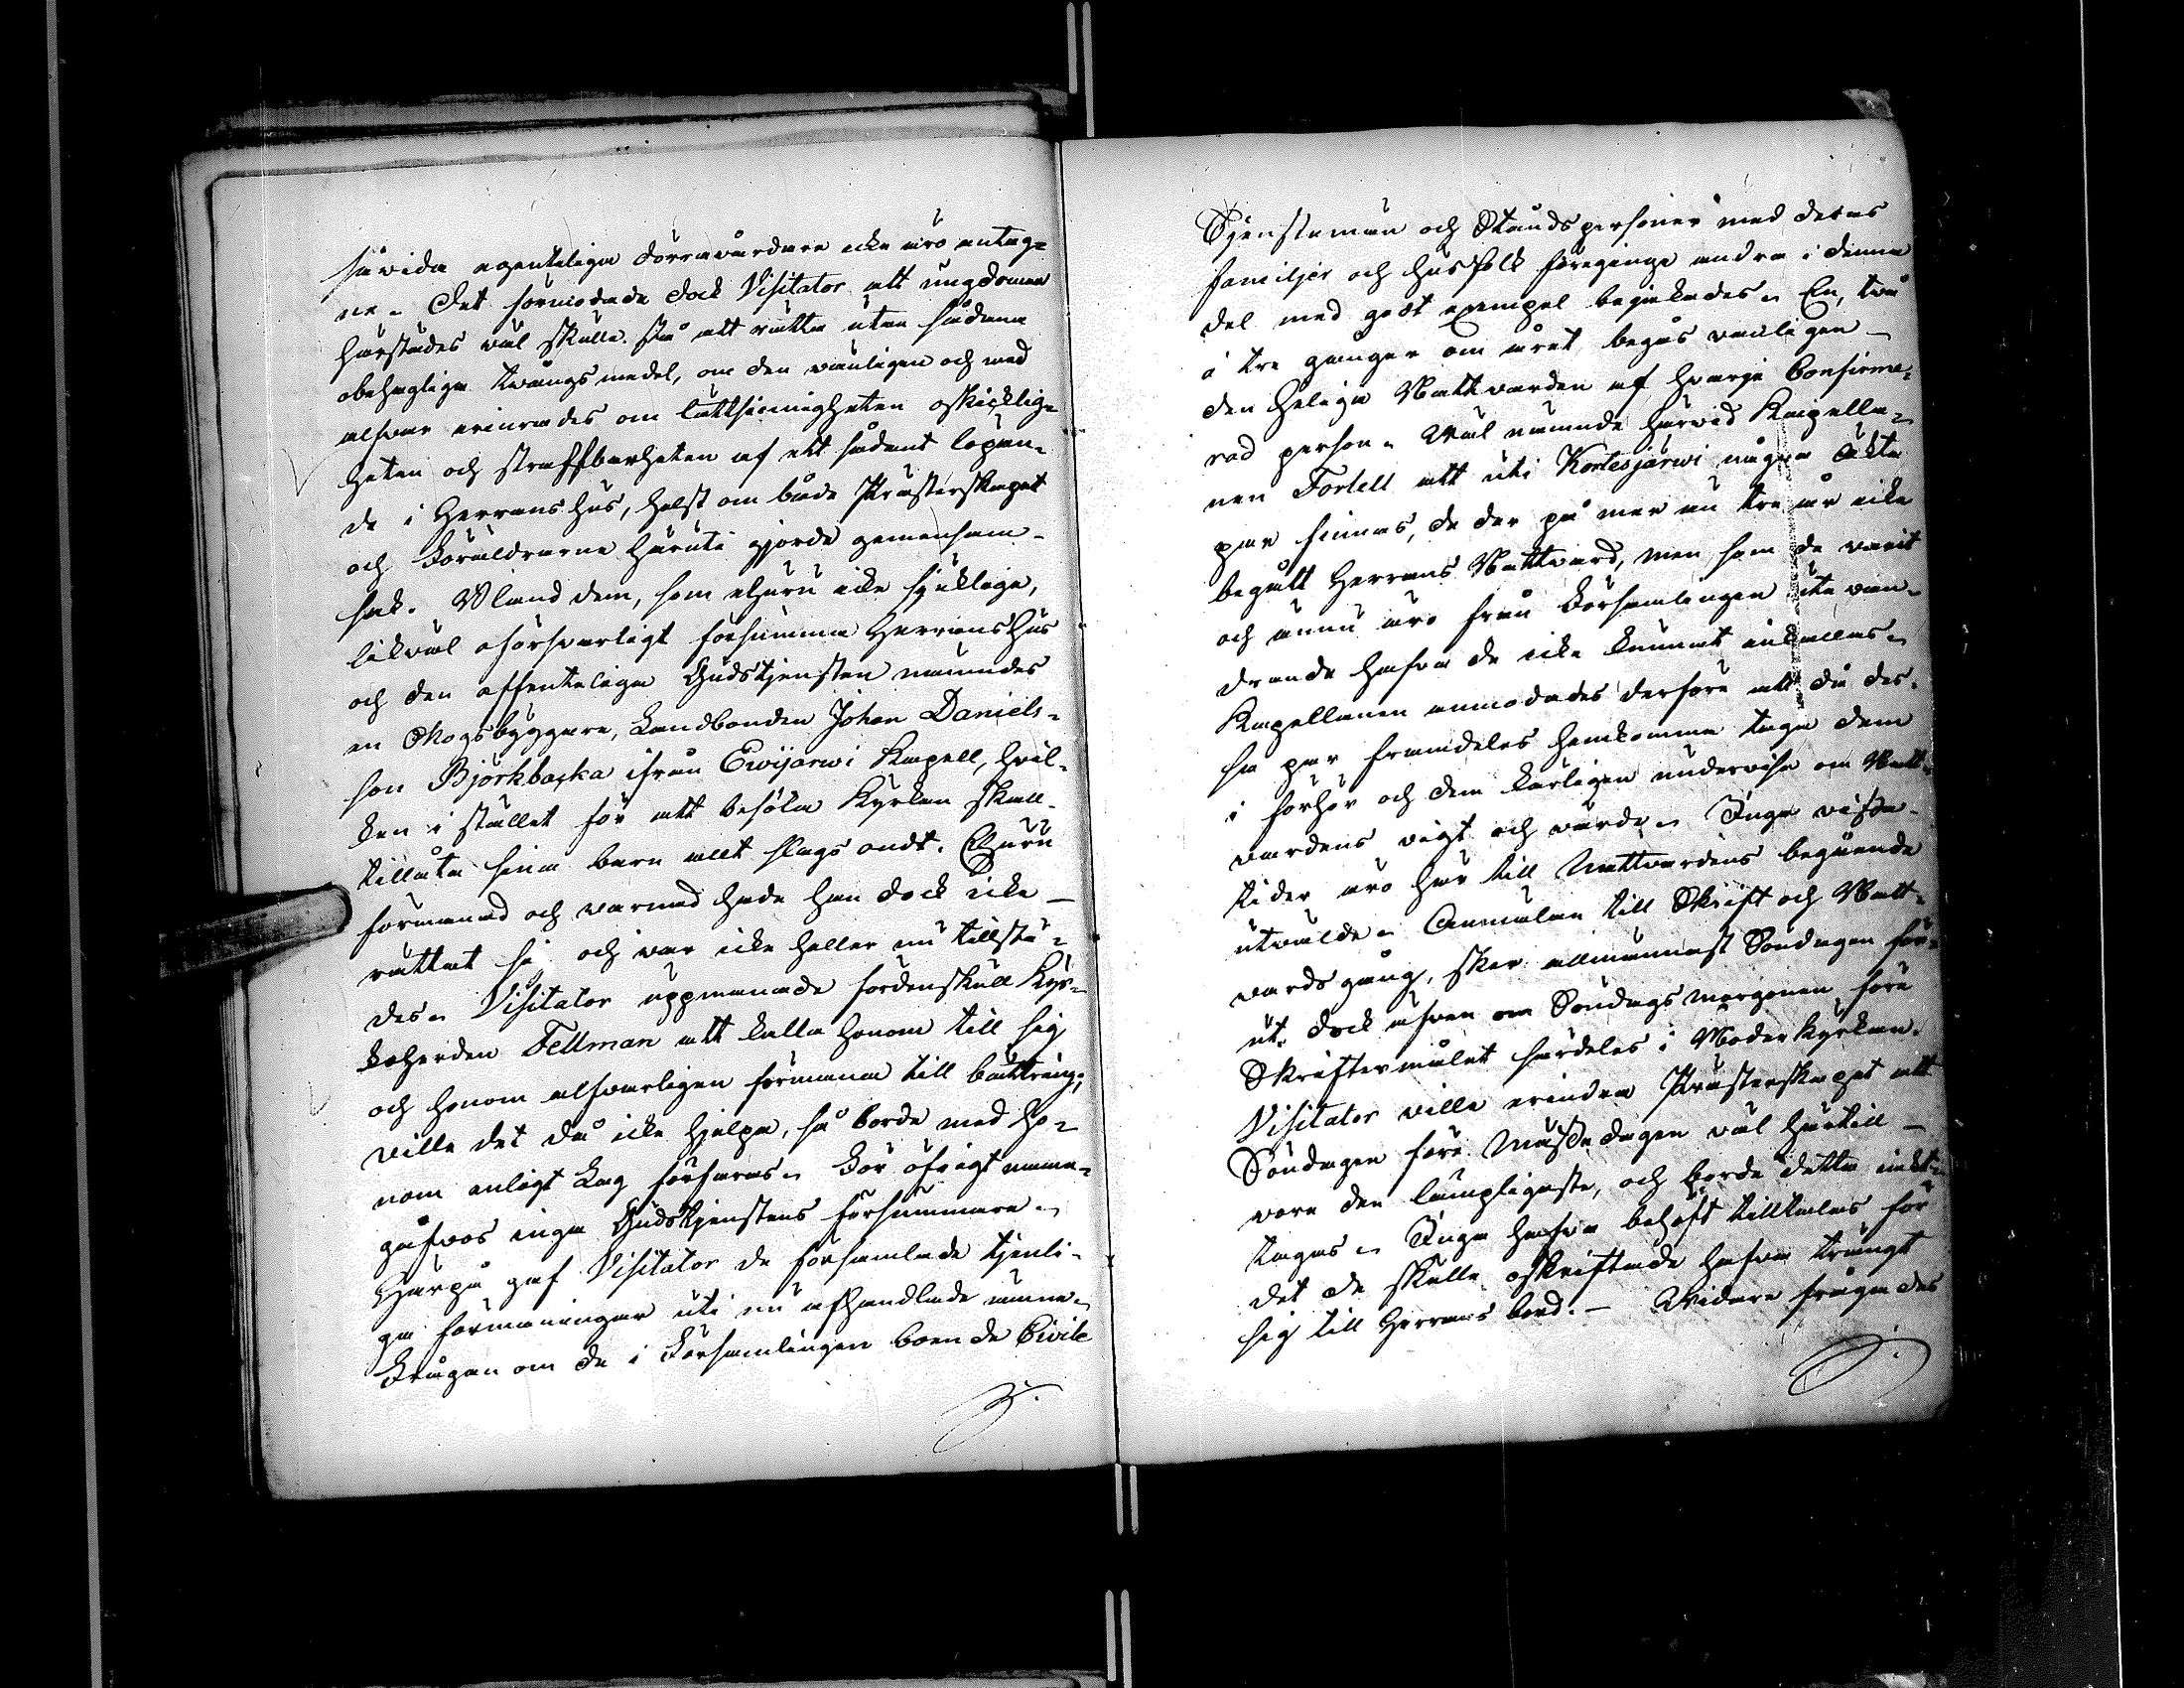 såvida egenteliga dörravårdare icke äro antag-
ne. Det förmodade dock Visitator att ungdomen
härstädes väl skulle stå att rätta utan sådana
obehagliga tvångsmedel, om den vänligen och med
alfvar erinrades om lättsinnigheten oskicklig-
heten och straffbarheten af ett sådant löpan-
de i Herrans hus, helst om både Presterskapet
och Föräldrarne häruti gjorde gemensam
sak. Bland dem, som ehuru icke sjuklige,
likväl oförsvarligt försumma Herrans hus
och den offenteliga Gudstjensten nämndes
en Skogsbyggare, Landbonden Johan Daniels-
son Björkbacka ifrån Ewijärwi Kapell, hvil-
ken i stället för att besöka Kyrkan skall
tillåta sina barn allt slags ondt. Ehuru
förmanad och varnad hade han dock icke
rättat sig och var icke heller nu tillstä-
des. Visitator uppmanade fördenskull Kyr-
koherden Fellman att kalla honom till sig
och honom alfvarligen förmana till bättring;
ville det då icke hjelpa, så borde med ho-
nom enligt Lag förfaras. För öfrigt anma-
gåfvos inga Gudstjenstens försummare.
Härpå gaf Visitator de församlade tjenli-
ga förmaningar uti nu afhandlade ämne.
Frågan om de i Församlingen boende Civile
Tjenstemän och Ståndspersoner med deras
familjer och husfolk föregingo andra i denna
del med godt exempel bejakades. En, två
á tre gånger om året begås vanligen
den heliga Nattvarden af hvarje Confirme-
rad person. Väl nämnde härvid Kapella-
nen Forsell att uti Kortesjärwi några äkta
par finnas, de der på mer än tre år icke
begått Herrans Nattvard, men som de varit
och ännu äro från Församlingen ute van-
drande hafva de icke kunnat inkallas.
Kapellanen anmodades derföre att då des-
sa par framdeles hemkomma taga dem
i förhör och dem kärligen undervisa om Natt-
vardens vigt och värde. Inga vissa
tider äro här till Nattvardens begående
utvalde. Anmälan till Skrift och Natt-
vardsgång, sker allmännast Söndagen för-
ut, dock äfven om Söndagsmorgonen före
Skriftermålet särdeles i Moderkyrkan.
Visitator ville erindra Presterskapet att
Söndagen före Mässedagen väl härtill
vore den lämpligaste, och borde detta iakt-
tagas. Inga hafva behöft tilltalas för
det de skulle oskriftade hafva trängt
sig till Herrans bord. — Vidare frågades